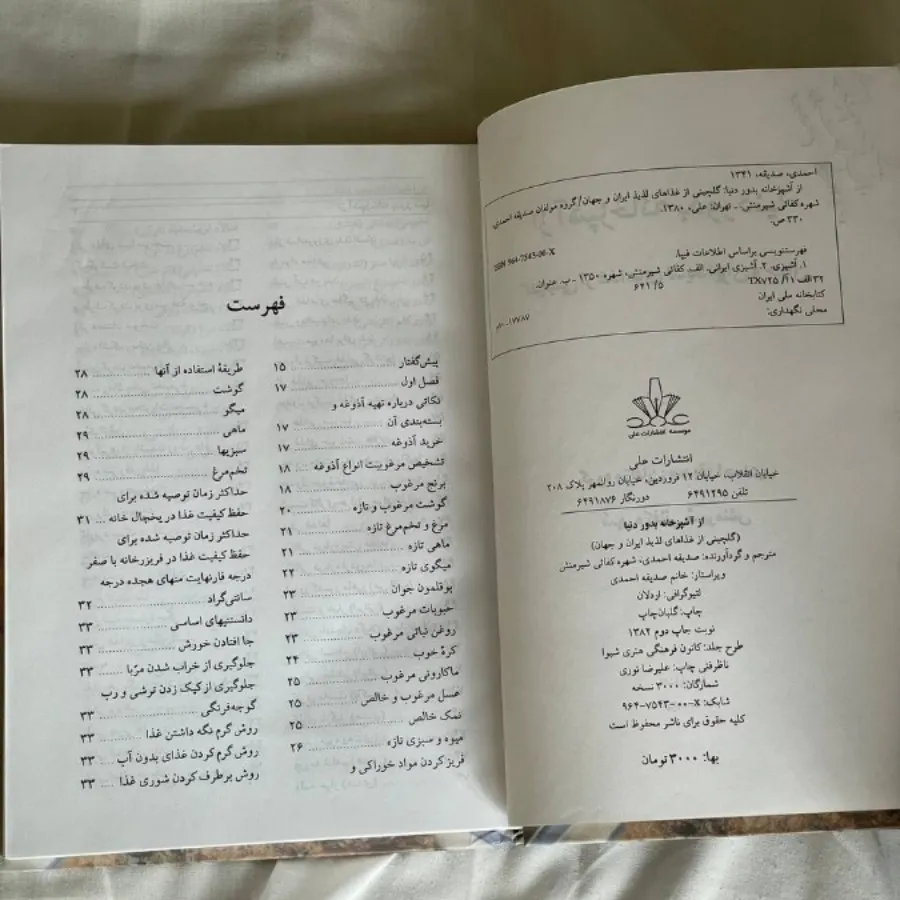 احمدی، صدیقه، ۱۳۴۱
از آشپزخانه بدور دنیا: گلچینی از غذاهای لذیذ ایران و جهان/ گروه مولفان صدیقه احمدی،
شهره کفائی شیرمنش. - تهران: علی، ۱۳۸۰.
۳۳۰ ص.
ISBN 964-7543-00-X
فهرستنویسی براساس اطلاعات فیپا.
۱. آشپزی. ۲. آشپزی ایرانی. الف. کفائی شیرمنش، شهره ۱۳۵۰ - ب. عنوان.
۳۲ الف ۲۱آ/ TX۷۲۵
۶۴۱/۵
کتابخانه ملی ایران
۱۷۷۸۷-۸۰م
محلی نگهداری:
موسسه انتشارات علی
انتشارات علی
خیابان انقلاب، خیابان ۱۲ فروردین، خیابان روانمهر پلاک ۲۰۸
تلفن ۶۴۹۱۲۹۵ دورنگار ۶۴۹۱۸۷۶
از آشپزخانه بدور دنیا
(گلچینی از غذاهای لذیذ ایران و جهان)
مترجم و گردآورنده: صدیقه احمدی، شهره کفائی شیرمنش
ویراستار: خانم صدیقه احمدی
لیتوگرافی: اردلان
چاپ: گلبان‌چاپ
نوبت چاپ دوم ۱۳۸۲
طرح جلد: کانون فرهنگی هنری شیوا
ناظرفنی چاپ: علیرضا نوری
شمارگان: ۳۰۰۰ نسخه
شابک: X-۰۰-۷۵۴۳-۹۶۴
کلیه حقوق برای ناشر محفوظ است
بها: ۳۰۰۰ تومان
فهرست
پیش‌گفتار ۱۵
فصل اول ۱۷
نکاتی درباره تهیه آذوغه و
بسته‌بندی آن ۱۷
خرید آذوغه ۱۷
تشخیص مرغوبیت انواع آذوغه ۱۸
برنج مرغوب ۱۸
گوشت مرغوب و تازه ۲۰
مرغ و تخم‌مرغ تازه ۲۱
ماهی تازه ۲۱
میگوی تازه ۲۲
بوقلمون جوان ۲۳
حبوبات مرغوب ۲۳
روغن نباتی مرغوب ۲۳
کرهٔ خوب ۲۴
ماکارونی مرغوب ۲۵
عسل مرغوب و خالص ۲۵
نمک خالص ۲۵
میوه و سبزی تازه ۲۶
فریز کردن مواد خوراکی و
طریقهٔ استفاده از آنها ۲۸
گوشت ۲۸
میگو ۲۸
ماهی ۲۹
سبزیها ۲۹
تخم‌مرغ ۲۹
حداکثر زمان توصیه شده برای
حفظ کیفیت غذا در یخچال خانه ۳۱
حداکثر زمان توصیه شده برای
حفظ کیفیت غذا در فریزرخانه با صفر
درجه فارنهایت منهای هجده درجه
سانتی‌گراد ۳۲
دانستنیهای اساسی ۳۳
جا افتادن خورش ۳۳
جلوگیری از خراب شدن مربّا ۳۳
جلوگیری از کپک زدن ترشی و رب
گوجه‌فرنگی ۳۳
روش گرم نگه داشتن غذا ۳۳
روش گرم کردن غذای بدون آب ۳۳
روش برطرف کردن شوری غذا ۳۳